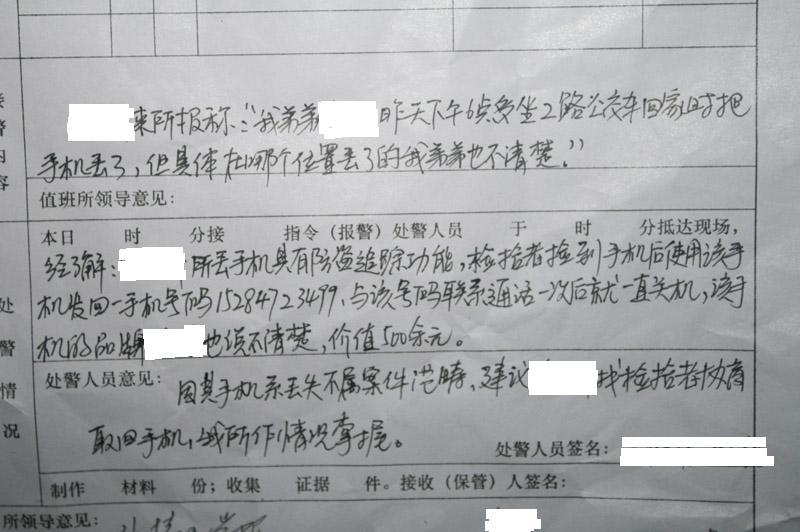 接警内容
来所报称:“我弟弟 昨天下午6点多坐2路公交车回家时把
手机丢了,但具体在哪个位置丢了的我弟弟也不清楚。”
值班所领导意见:
本日 时 分接 指令(报警)处警人员 于 时 分抵达现场,
经了解: 所丢手机具有防盗追踪功能,检拾者捡到手机后使用该手
机发回一手机号码15284723499,与该号码联系通话一次后就一直关机,该手
机的品牌 也说不清楚,价值500余元。
处警情况
处警人员意见:
因其手机系丢失不属案件范畴,建议 找检拾者协商
取回手机,我所作情况掌握。
处警人员签名:
制作 材料 份;收集 证据 件。接收(保管)人签名:
所领导意见: